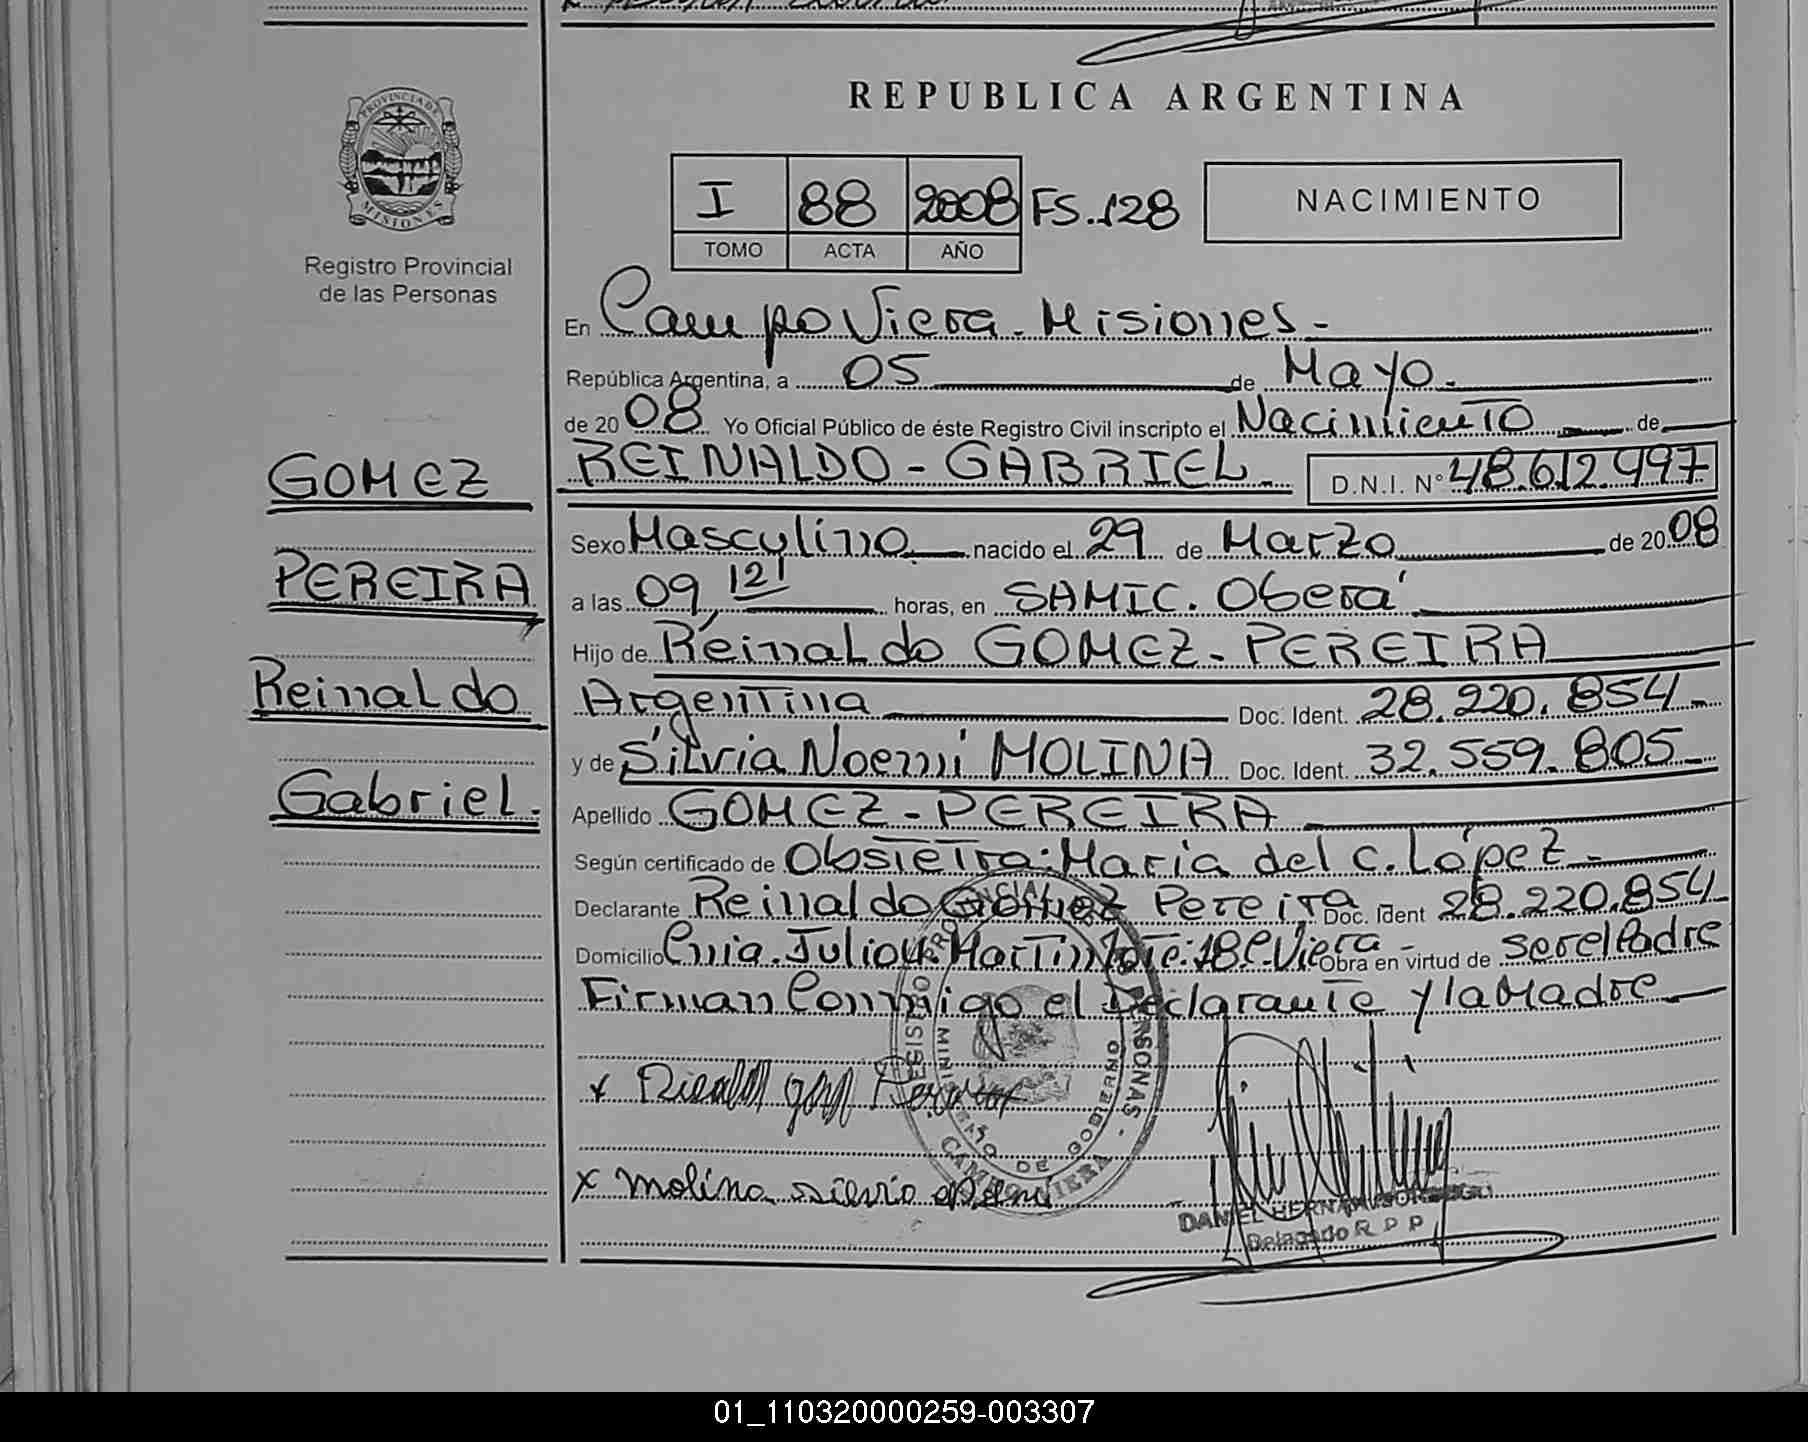 REPUBLICA ARGENTINA
PROVINCIA DE
MISIONES
Registro Provincial
de las Personas
I 88 2008 FS. 128
TOMO ACTA AÑO
NACIMIENTO
En Campo Viera - Misiones -
República Argentina, a 05 de Mayo.
de 2008 Yo Oficial Público de éste Registro Civil inscripto el Nacimiento de
REINALDO - GABRIEL - D.N.I. N° 48.612.997
Sexo Masculino nacido el 29 de Marzo de 2008
a las 09,12' horas, en SAMIC. Oberá
Hijo de Reinaldo GOMEZ - PEREIRA
Argentina Doc. Ident. 28.220.854 -
y de Silvia Noemí MOLINA Doc. Ident. 32.559.805 -
Apellido GOMEZ - PEREIRA
Según certificado de Obstetra: María del C. López -
Declarante Reinaldo Gómez Pereira Doc. Ident 28.220.854
Domicilio Lote: 18 C. Viera - Obra en virtud de ser el Padre
Firman Conmigo el Declarante y la Madre
GOMEZ
PEREIRA
Reinaldo
Gabriel.
x
x molina
MINISTERIO DE GOBIERNO
CAMPO VIERA
DANIEL
Delegado R P P
01_110320000259-003307